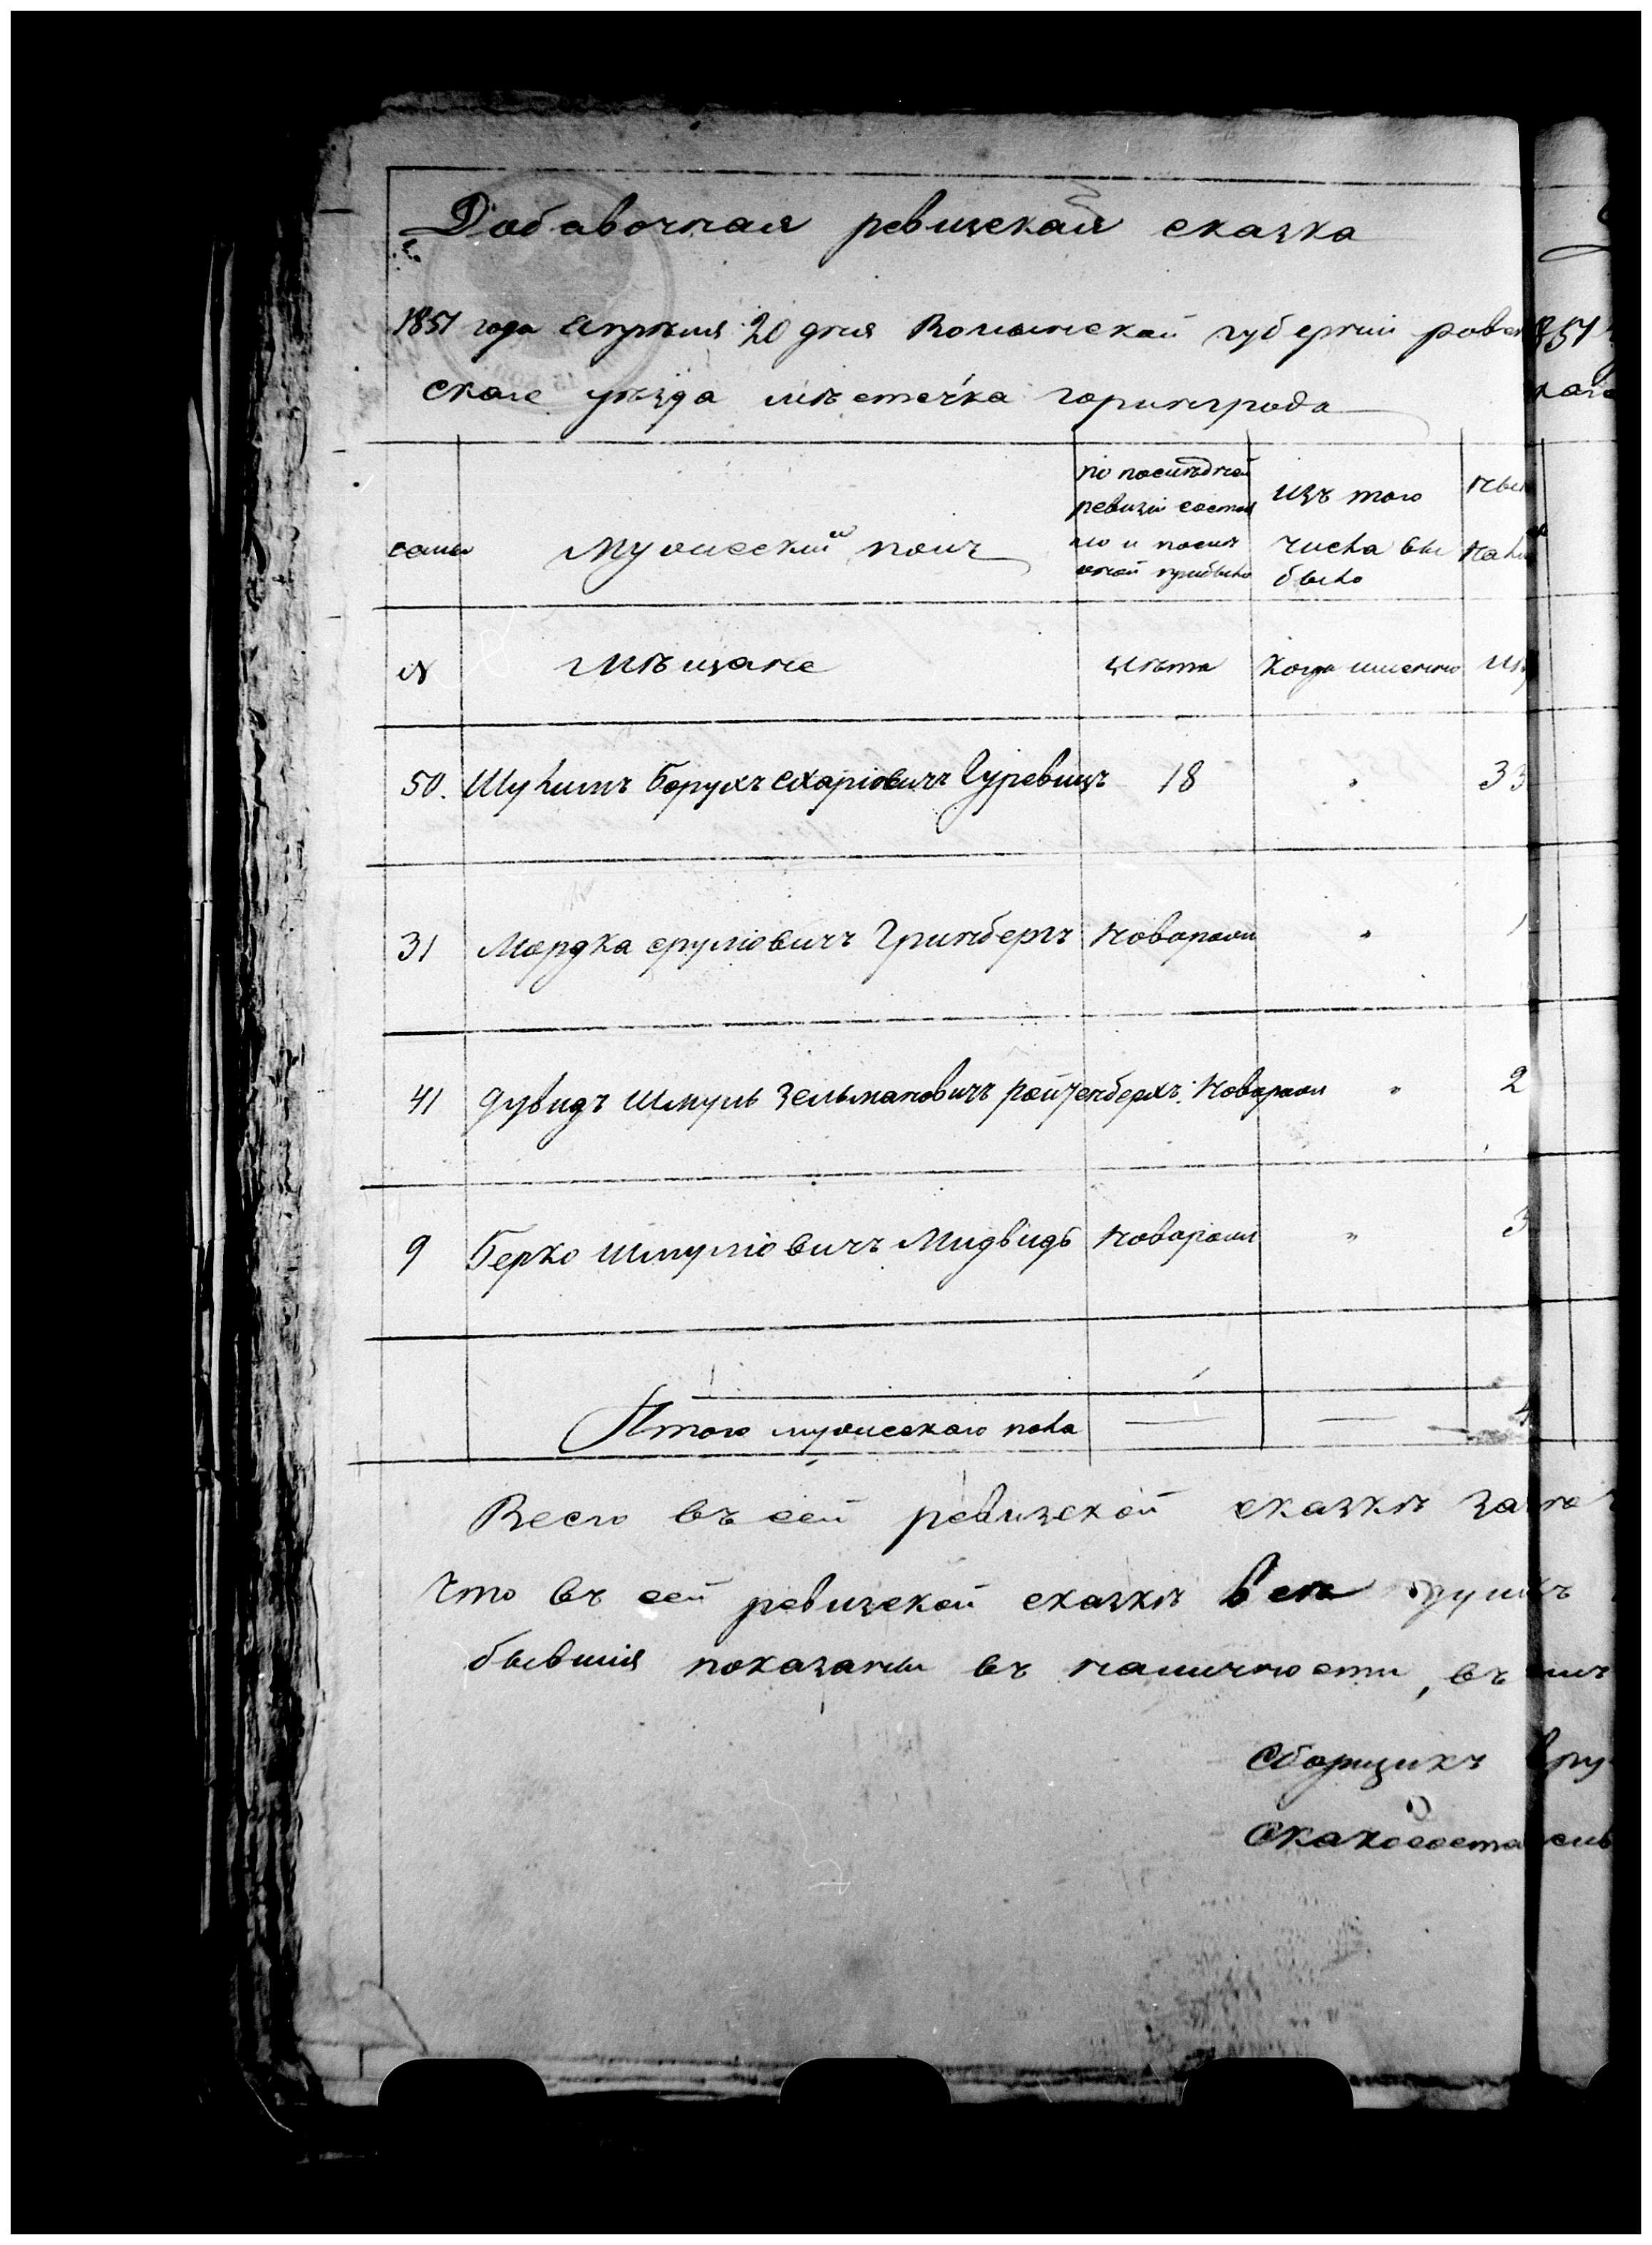 Добавочная ревизская сказка
1851 года апреля 20 дня Волынской губернии ровен
скаго уезда мѣстечка горинграда
семьи
Мужеский полъ
по последней
ревизіи состоя
ло и после
оной прибыло
изъ того
числа вы
было
ныне
нали
№
Мѣщане
лѣта
когда именно
50. Шулимъ Борухъ Гуревицъ 18 " 33
31 Мордка сруліовичъ Гринбергъ новорожд " 1
41 Дувидъ Шмуль Зельмановичъ ройзенберхъ новорожд " 2
9 Берко Шмуліовичъ Мидвидь новорожд " 3
Итого мужескаго пола — — 4
Всего въ сей ревизской сказкѣ
что въ сей ревизской сказкѣ все душъ
бывшія показаны въ наличности, въ
Сборщикъ